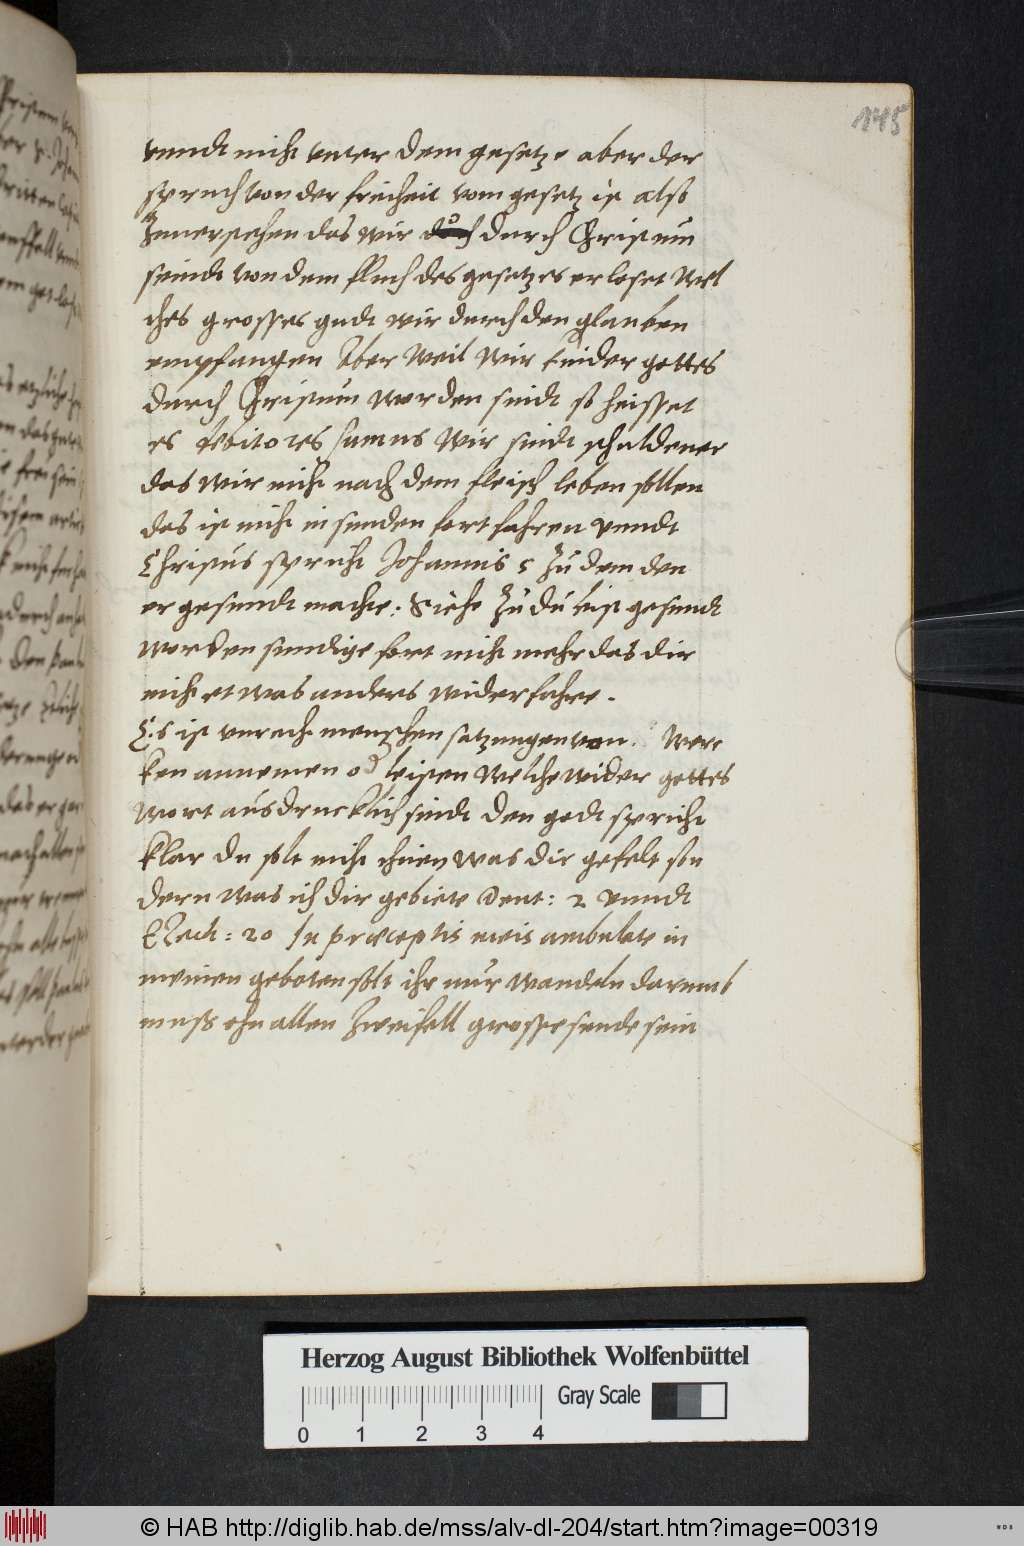 145
vnndt nicht vnter dem gesetze aber der
spruch von der freiheit vom gesetz ist also
Zuuerstehen das wir durch Christum
seindt von dem fluch des gesetzes erloset wel
ches grosses gudt wir durch den glauben
empfangen Aber weil wir kinder gottes
durch Christum worden sindt so heisset
es debitores sumus wir sindt schuldener
das wir nicht nach dem fleisch leben sollen
das ist nicht in sunden fort fahren vnndt
Christus spricht Johannis 5 Zu dem den
er gesundt machte: Siehe Zu du bist gesundt
worden sundige fort nicht mehr das dir
nicht etwas anders widerfahre.
Es ist vnrecht menschen satzungen von Werc
ken annemen od leisten welche wider gottes
wort ausdrucklich sindt den godt spricht
klar du solt nicht thuen was dir gefelt son
dern was ich dir gebiete Deut: 2 vnndt
Ezech: 20 In præceptis meis ambulate in
meinen geboten solt ihr nur wandeln darumb
muss ohn allen Zweifell grosse sunde sein
Herzog August Bibliothek Wolfenbüttel
Gray Scale
0 1 2 3 4
© HAB http://diglib.hab.de/mss/alv-dl-204/start.htm?image=00319